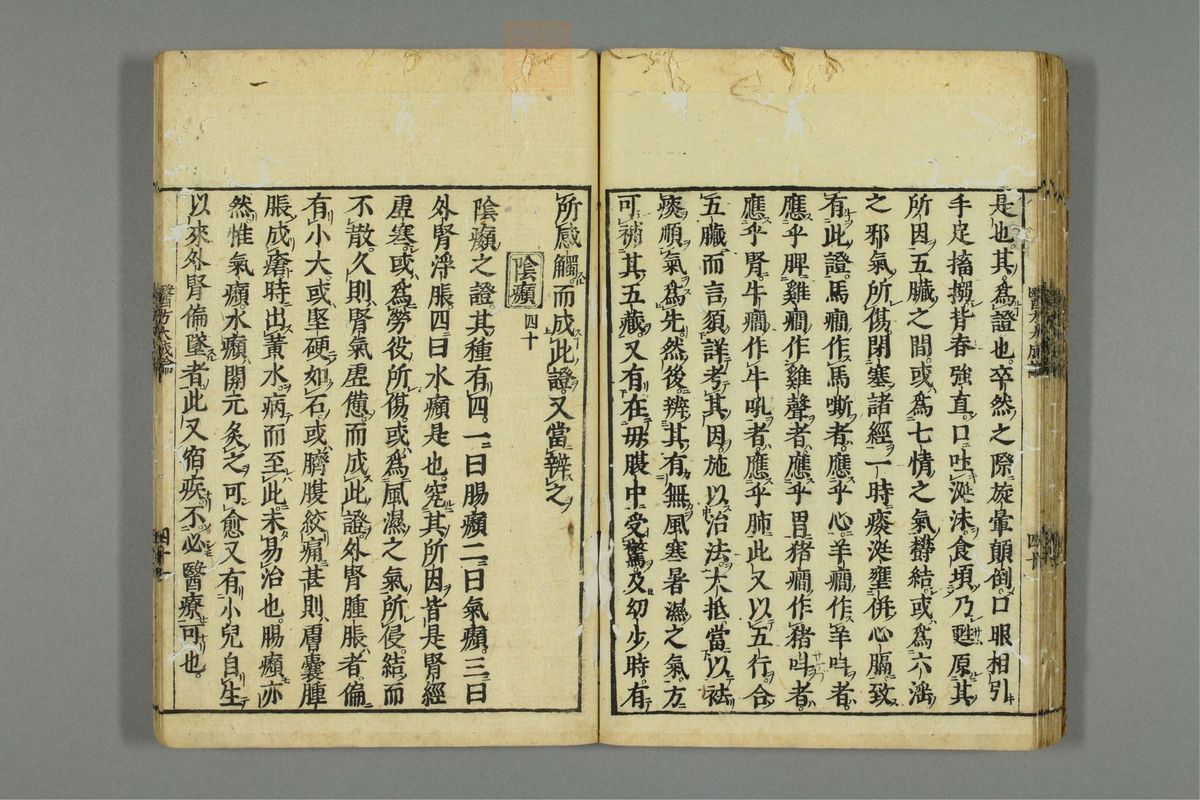 是也其爲證也卒然之際旋暈顛倒口眼相引
手足搐搦背脊強直口吐涎沫食頃乃甦原其
所因五臟之間或爲七情之氣欝結或爲六淫
之邪氣所傷閉塞諸經一時痰涎壅併心膈致
有此證馬癎作馬嘶者應乎心羊癎作羊呌者
應乎脾雞癎作雞聲者應乎胃猪癎作猪呌者
應乎腎牛癎作牛吼者應乎肺此又以五行合
五臟而言須詳考其因施以治法大抵當以祛
痰順氣爲先然後辨其有無風寒暑濕之氣方
可補其五藏又有在母腹中受驚及幼少時有
所感觸而成此證又當辨之
陰㿗 四十
陰㿗之證其種有四一曰腸㿗二曰氣㿗三曰
外腎浮脹四曰水㿗是也究其所因皆是腎經
虛寒或爲勞役所傷或爲風濕之氣所侵結而
不散久則腎氣虛憊而成此證外腎腫脹者偏
有小大或堅硬如石或臍腹絞痛甚則膚囊腫
脹成瘡時出黃水病而至此未易治也腸㿗亦
然惟氣㿗水㿗開元灸之可愈又有小兒自生
以來外腎偏墜者此又宿疾不必醫療可也
醫方大成論